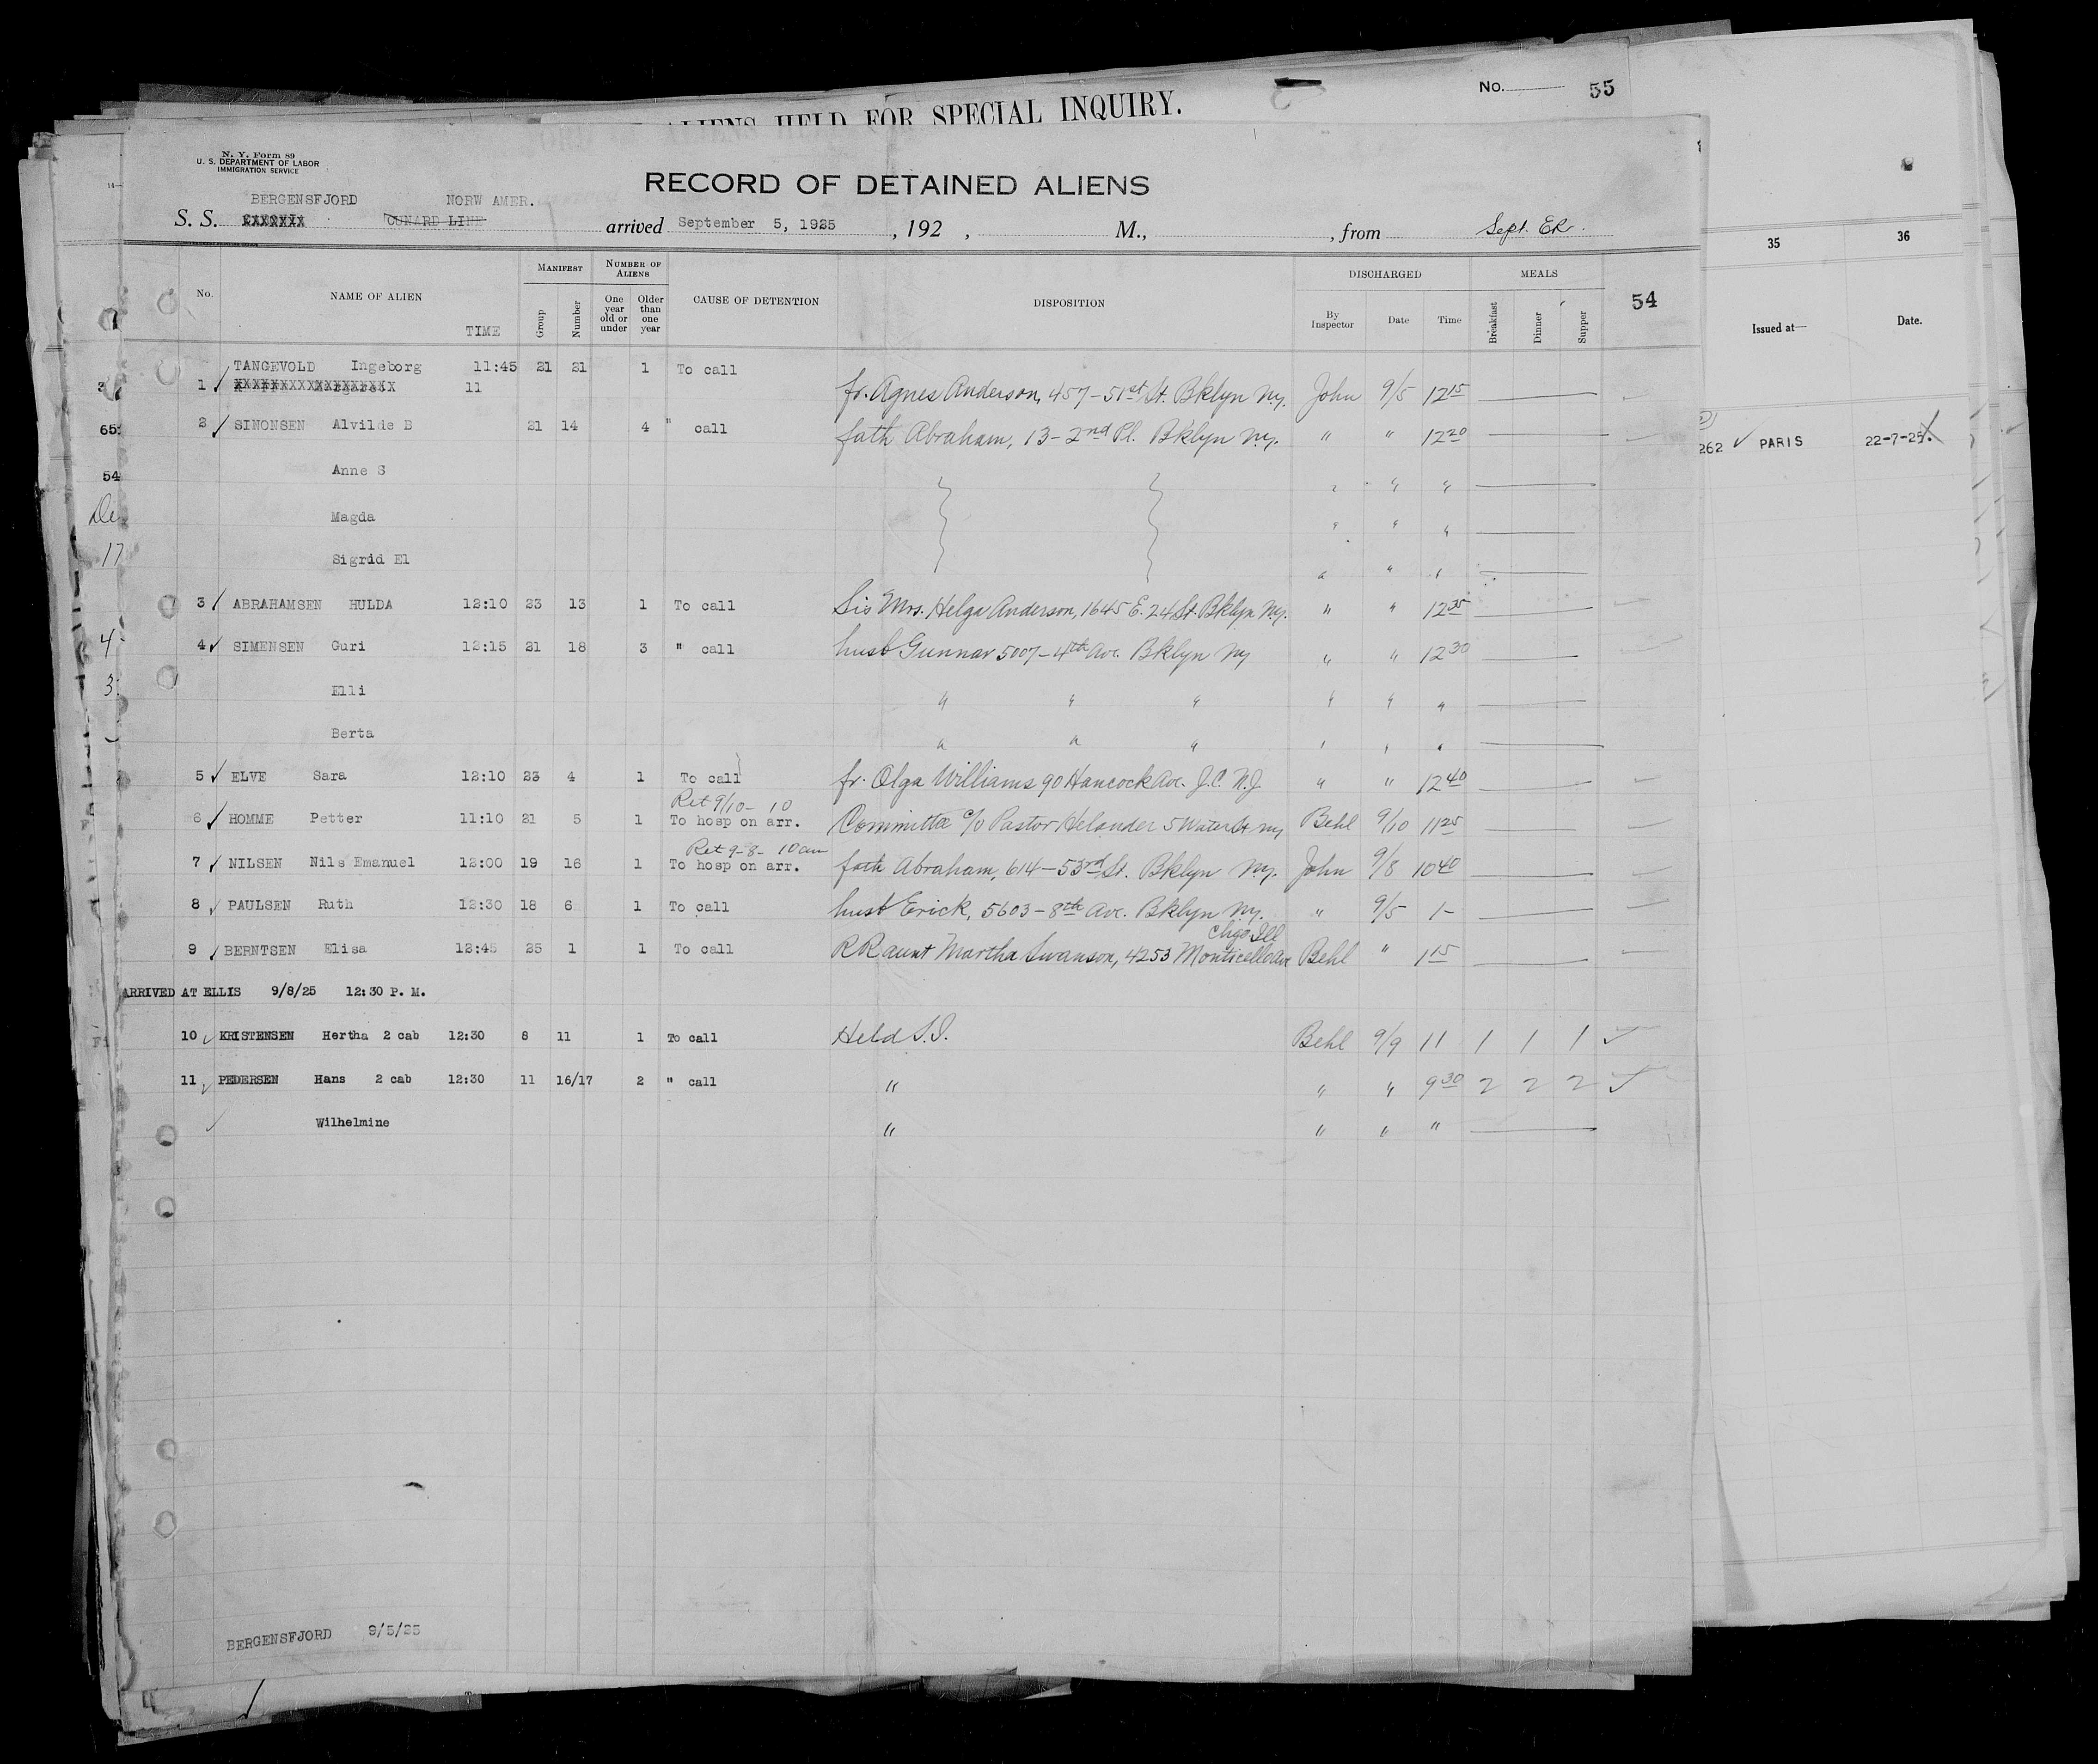 No. 55
ALIENS HELD FOR SPECIAL INQUIRY.
N. Y. Form 89
U. S. DEPARTMENT OF LABOR
IMMIGRATION SERVICE
RECORD OF DETAINED ALIENS
BERGENSFJORD NORW AMER.
S. S. CUNARD LINE arrived September 5, 1925 , 192 , M., , from Sept. ER.
No. NAME OF ALIEN TIME MANIFEST Group Number NUMBER OF ALIENS One year old or under Older than one year CAUSE OF DETENTION DISPOSITION DISCHARGED By Inspector Date Time MEALS Breakfast Dinner Supper 54
35 36
Issued at— Date.
TANGEVOLD Ingeborg 11:45 21 21 1 To call
1 11 fr. Agnes Anderson, 457-51st St. Bklyn N.y. John 9/5 12 15
2 SINONSEN Alvilde B 21 14 4 " call fath Abraham, 13-2nd Pl. Bklyn N.y. " " 12 20
262 PARIS 22-7-25
Anne S " " "
Magda " " "
Sigrid El " " "
3 ABRAHAMSEN HULDA 12:10 23 13 1 To call Sis Mrs. Helga Anderson, 1645 E. 24 St. Bklyn N.y. " " 12 35
4 SIMENSEN Guri 12:15 21 18 3 " call husb Gunnar 5007-4th Ave. Bklyn Ny " " 12 30
Elli " " " " " "
Berta " " " " " "
5 ELVE Sara 12:10 23 4 1 To call fr. Olga Williams 90 Hancock Ave. J.C. N.J. " " 12 40
Ret 9/10- 10
6 HOMME Petter 11:10 21 5 1 To hosp on arr. Committee c/o Pastor Helander 5 Water St ny Behl 9/10 11 25
Ret 9-8- 10 am
7 NILSEN Nils Emanuel 12:00 19 16 1 To hosp on arr. fath Abraham, 614-53rd St. Bklyn N.y. John 9/8 10 40
8 PAULSEN Ruth 12:30 18 6 1 To call husb Erick, 5603-8th Ave. Bklyn N.y. " 9/5 1-
Chgo Ill
9 BERNTSEN Elisa 12:45 25 1 1 To call RR aunt Martha Swanson, 4253 Monticello Ave Behl " 1 15
ARRIVED AT ELLIS 9/8/25 12:30 P. M.
10 KRISTENSEN Hertha 2 cab 12:30 8 11 1 To call Held S.I. Behl 9/9 11 1 1 1
11 PEDERSEN Hans 2 cab 12:30 11 16/17 2 " call " " " 9 30 2 2 2
Wilhelmine " " " "
BERGENSFJORD 9/5/25